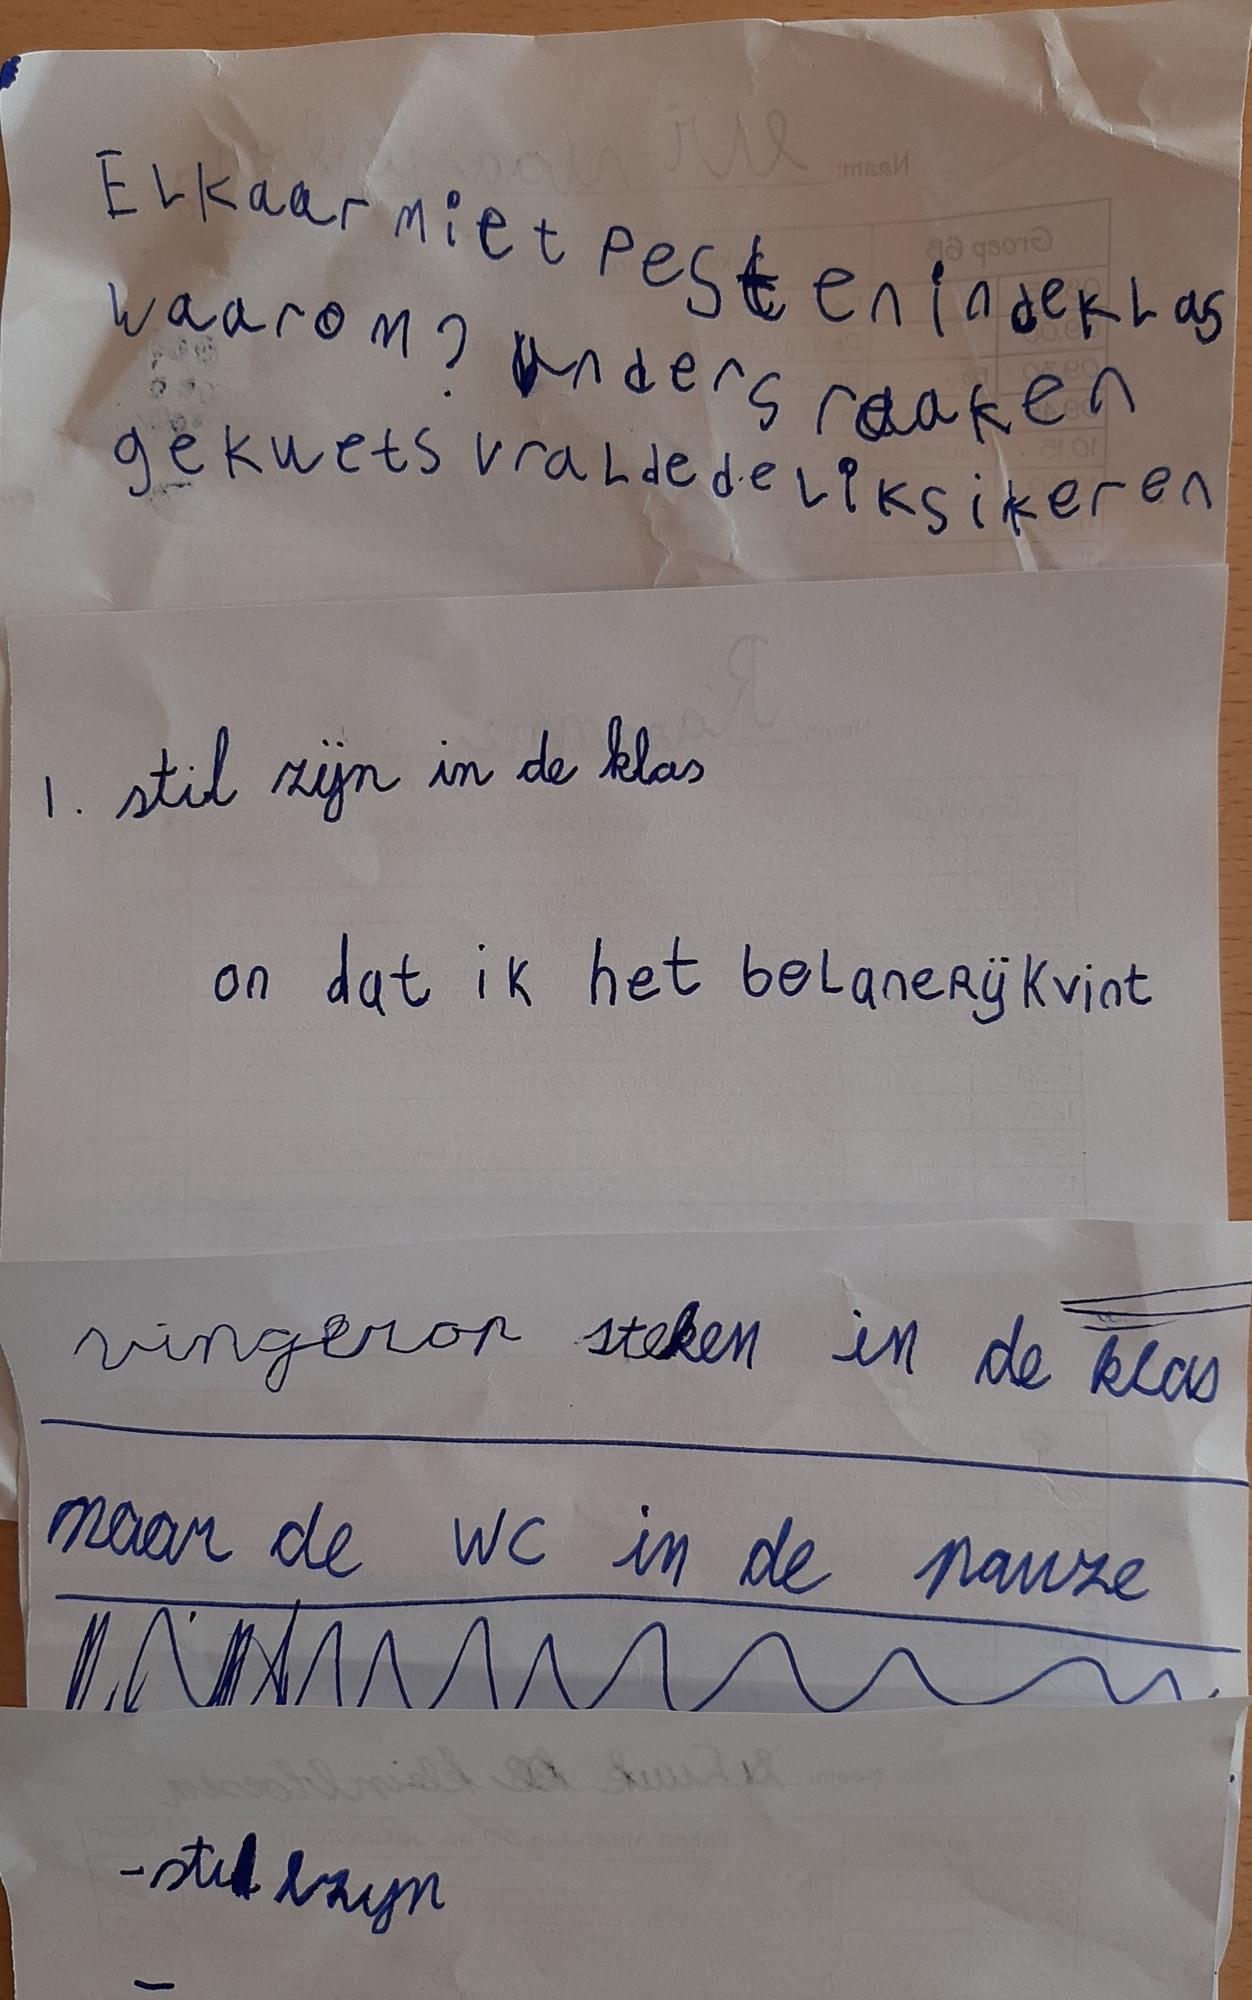 Elkaar niet pesten in de klas
waarom? anders raaken
gekwets vralde de liksikeren
1. stil zijn in de klas
on dat ik het belanerijk vint
vingerop steken in de klas
naar de wc in de pauze
- stil zijn
-